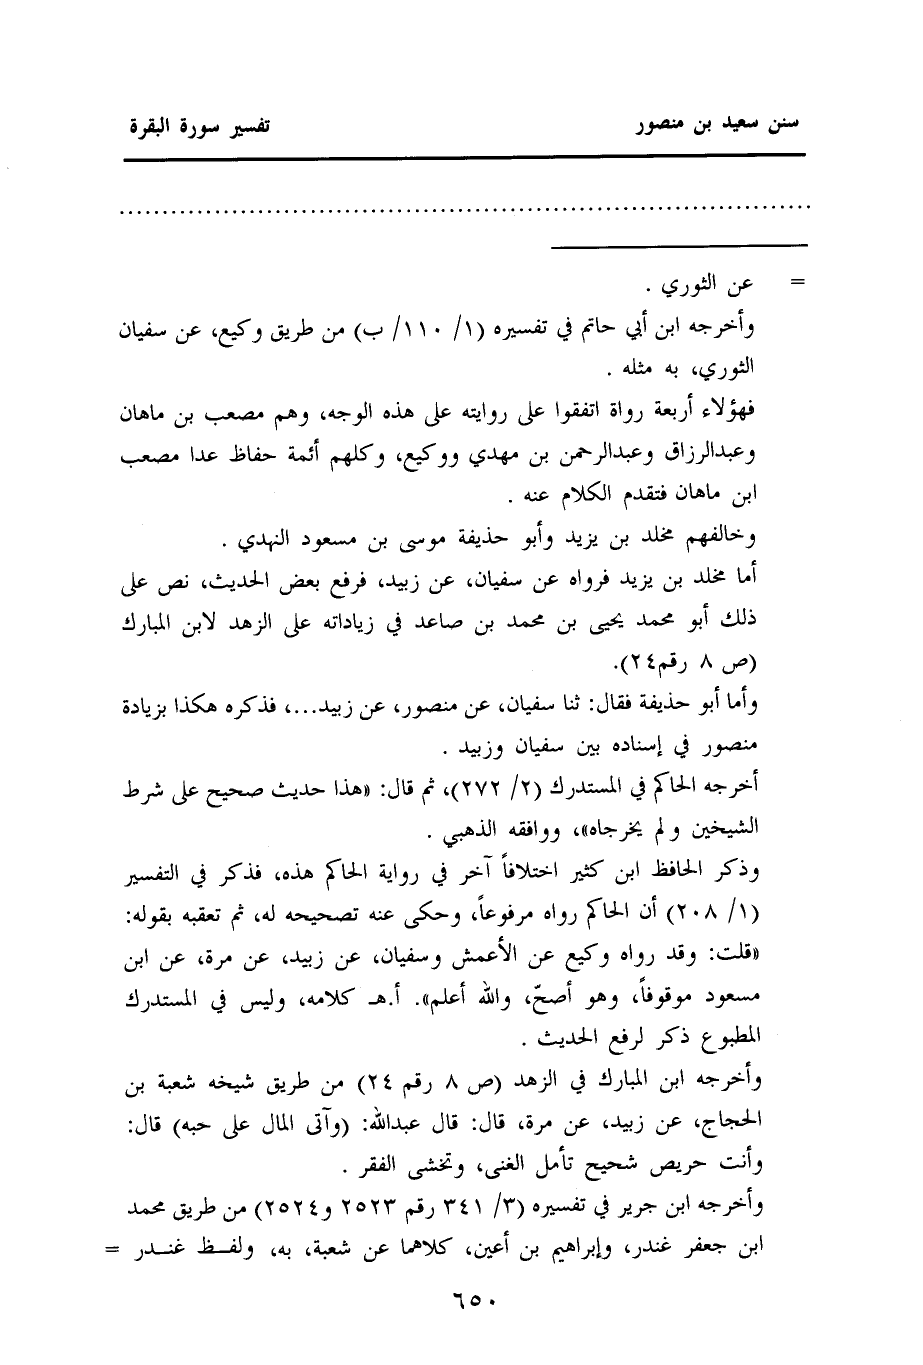 سنن سعيد بن منصور
تفسير سورة البقرة
= عن الثوري .
وأخرجه ابن أبي حاتم في تفسيره (١/ ١١٠/ ب) من طريق وكيع، عن سفيان
الثوري، به مثله .
فهؤلاء أربعة رواة اتفقوا على روايته على هذه الوجه، وهم مصعب بن ماهان
وعبدالرزاق وعبدالرحمن بن مهدي ووكيع، وكلهم أئمة حفاظ عدا مصعب
ابن ماهان فتقدم الكلام عنه .
وخالفهم مخلد بن يزيد وأبو حذيفة موسى بن مسعود النهدي .
أما مخلد بن يزيد فرواه عن سفيان، عن زبيد، فرفع بعض الحديث، نص على
ذلك أبو محمد يحيى بن محمد بن صاعد في زياداته على الزهد لابن المبارك
(ص ٨ رقم٢٤).
وأما أبو حذيفة فقال: ثنا سفيان، عن منصور، عن زبيد...، فذكره هكذا بزيادة
منصور في إسناده بين سفيان وزبيد .
أخرجه الحاكم في المستدرك (٢/ ٢٧٢)، ثم قال: «هذا حديث صحيح على شرط
الشيخين ولم يخرجاه»، ووافقه الذهبي .
وذكر الحافظ ابن كثير اختلافاً آخر في رواية الحاكم هذه، فذكر في التفسير
(١/ ٢٠٨) أن الحاكم رواه مرفوعاً، وحكى عنه تصحيحه له، ثم تعقبه بقوله:
«قلت: وقد رواه وكيع عن الأعمش وسفيان، عن زبيد، عن مرة، عن ابن
مسعود موقوفاً، وهو أصحّ، والله أعلم». أ.هـ كلامه، وليس في المستدرك
المطبوع ذكر لرفع الحديث .
وأخرجه ابن المبارك في الزهد (ص ٨ رقم ٢٤) من طريق شيخه شعبة بن
الحجاج، عن زبيد، عن مرة، قال: قال عبدالله: (وآتى المال على حبه) قال:
وأنت حريص شحيح تأمل الغنى، وتخشى الفقر .
وأخرجه ابن جرير في تفسيره (٣/ ٣٤١ رقم ٢٥٢٣ و٢٥٢٤) من طريق محمد
ابن جعفر غندر، وإبراهيم بن أعين، كلاهما عن شعبة، به، ولفـظ غنـدر =
٦٥٠